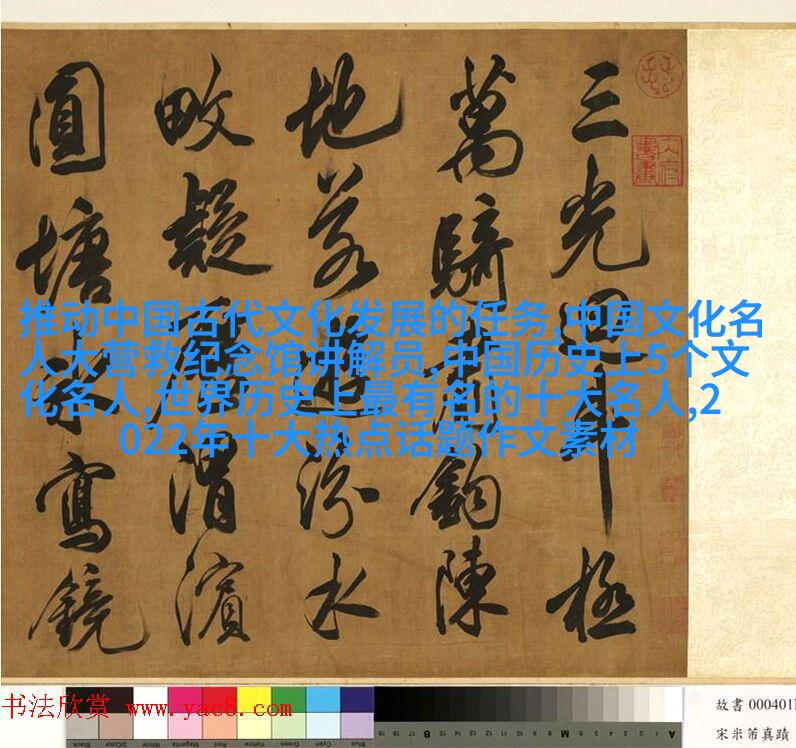 三光迴斗極
萬騎肅鈎陳
地若遊汾水
畋疑歷渭濱
圓塘冰寫鏡
推动中国古代文化发展的任务,中国文化名
人大营救纪念馆讲解员,中国历史上5个文
化名人,世界历史上最有名的十大名人,2
022年十大热点话题作文素材
书法欣赏 www.yac8.com
故書 000401
宋米芾真蹟